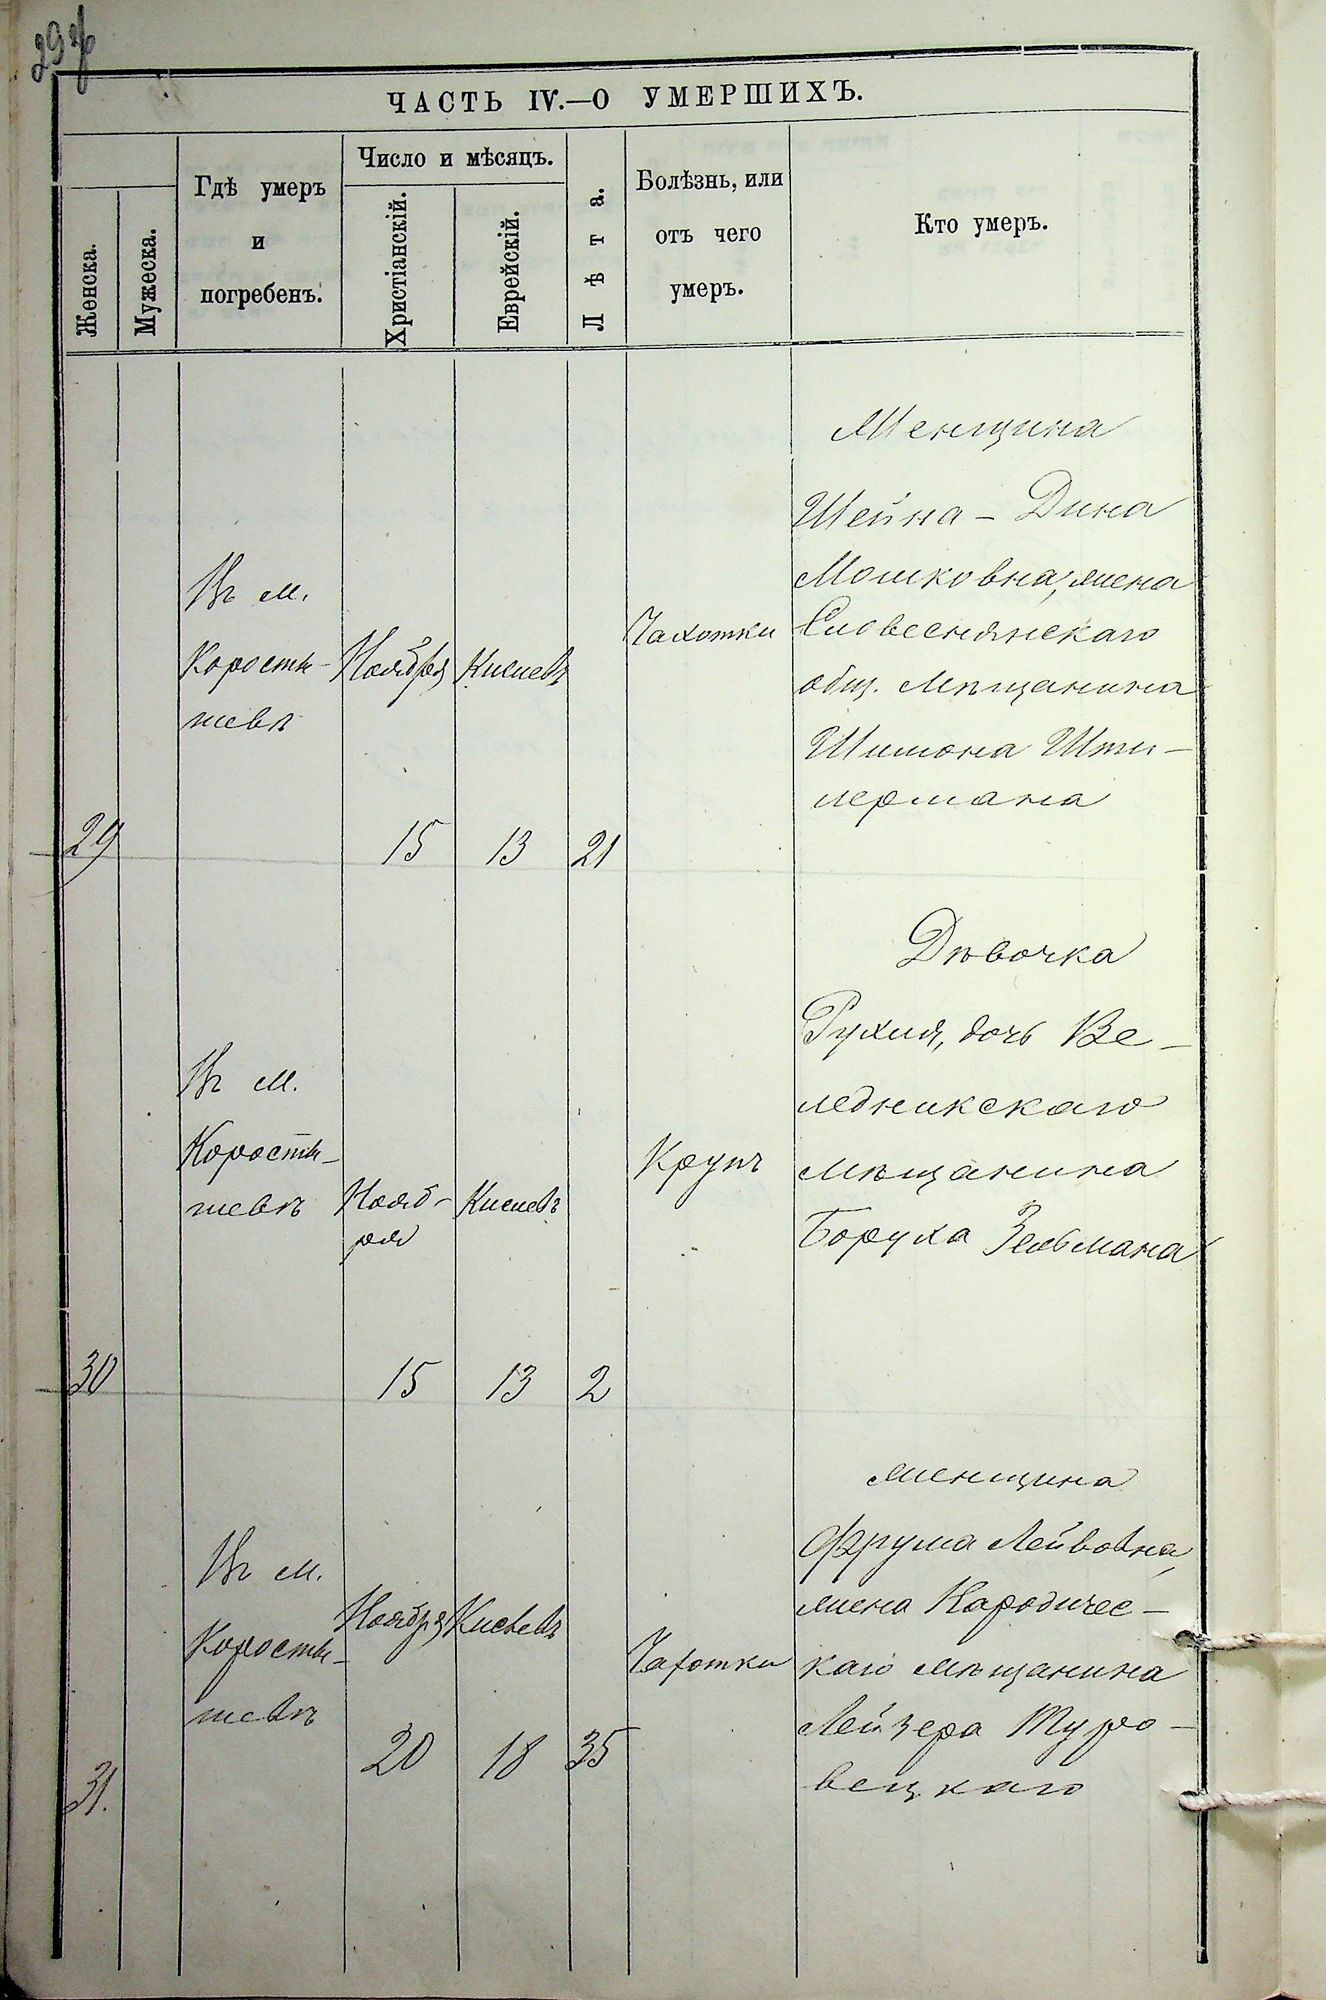 ЧАСТЬ IV.—О УМЕРШИХЪ.
Женска.
Мужеска.
Гдѣ умеръ
и
погребенъ.
Число и мѣсяцъ.
Христіанскій.
Еврейскій.
Лѣта.
Болѣзнь, или
отъ чего
умеръ.
Кто умеръ.
29
Въ м.
Корости-
шевѣ
Ноября
15
Кислевъ
13
21
Чахотки
Женщина
Шейна - Дина
Мошковна, жена
Словеснянскаго
общ. мѣщанина
Шимона Шти-
лермана
30
Въ м.
Корости-
шевѣ
Нояб-
ря
15
Кислевъ
13
2
Крупъ
Дѣвочка
Рухля, дочь Ве-
ледникскаго
мѣщанина
Боруха Зельмана
31.
Въ м.
Корости-
шевѣ
Ноября
20
Кислевъ
18
35
Чахотки
женщина
Фрума Лейвовна,
жена Народичес-
каго мѣщанина
Лейзера Туро-
вецкаго